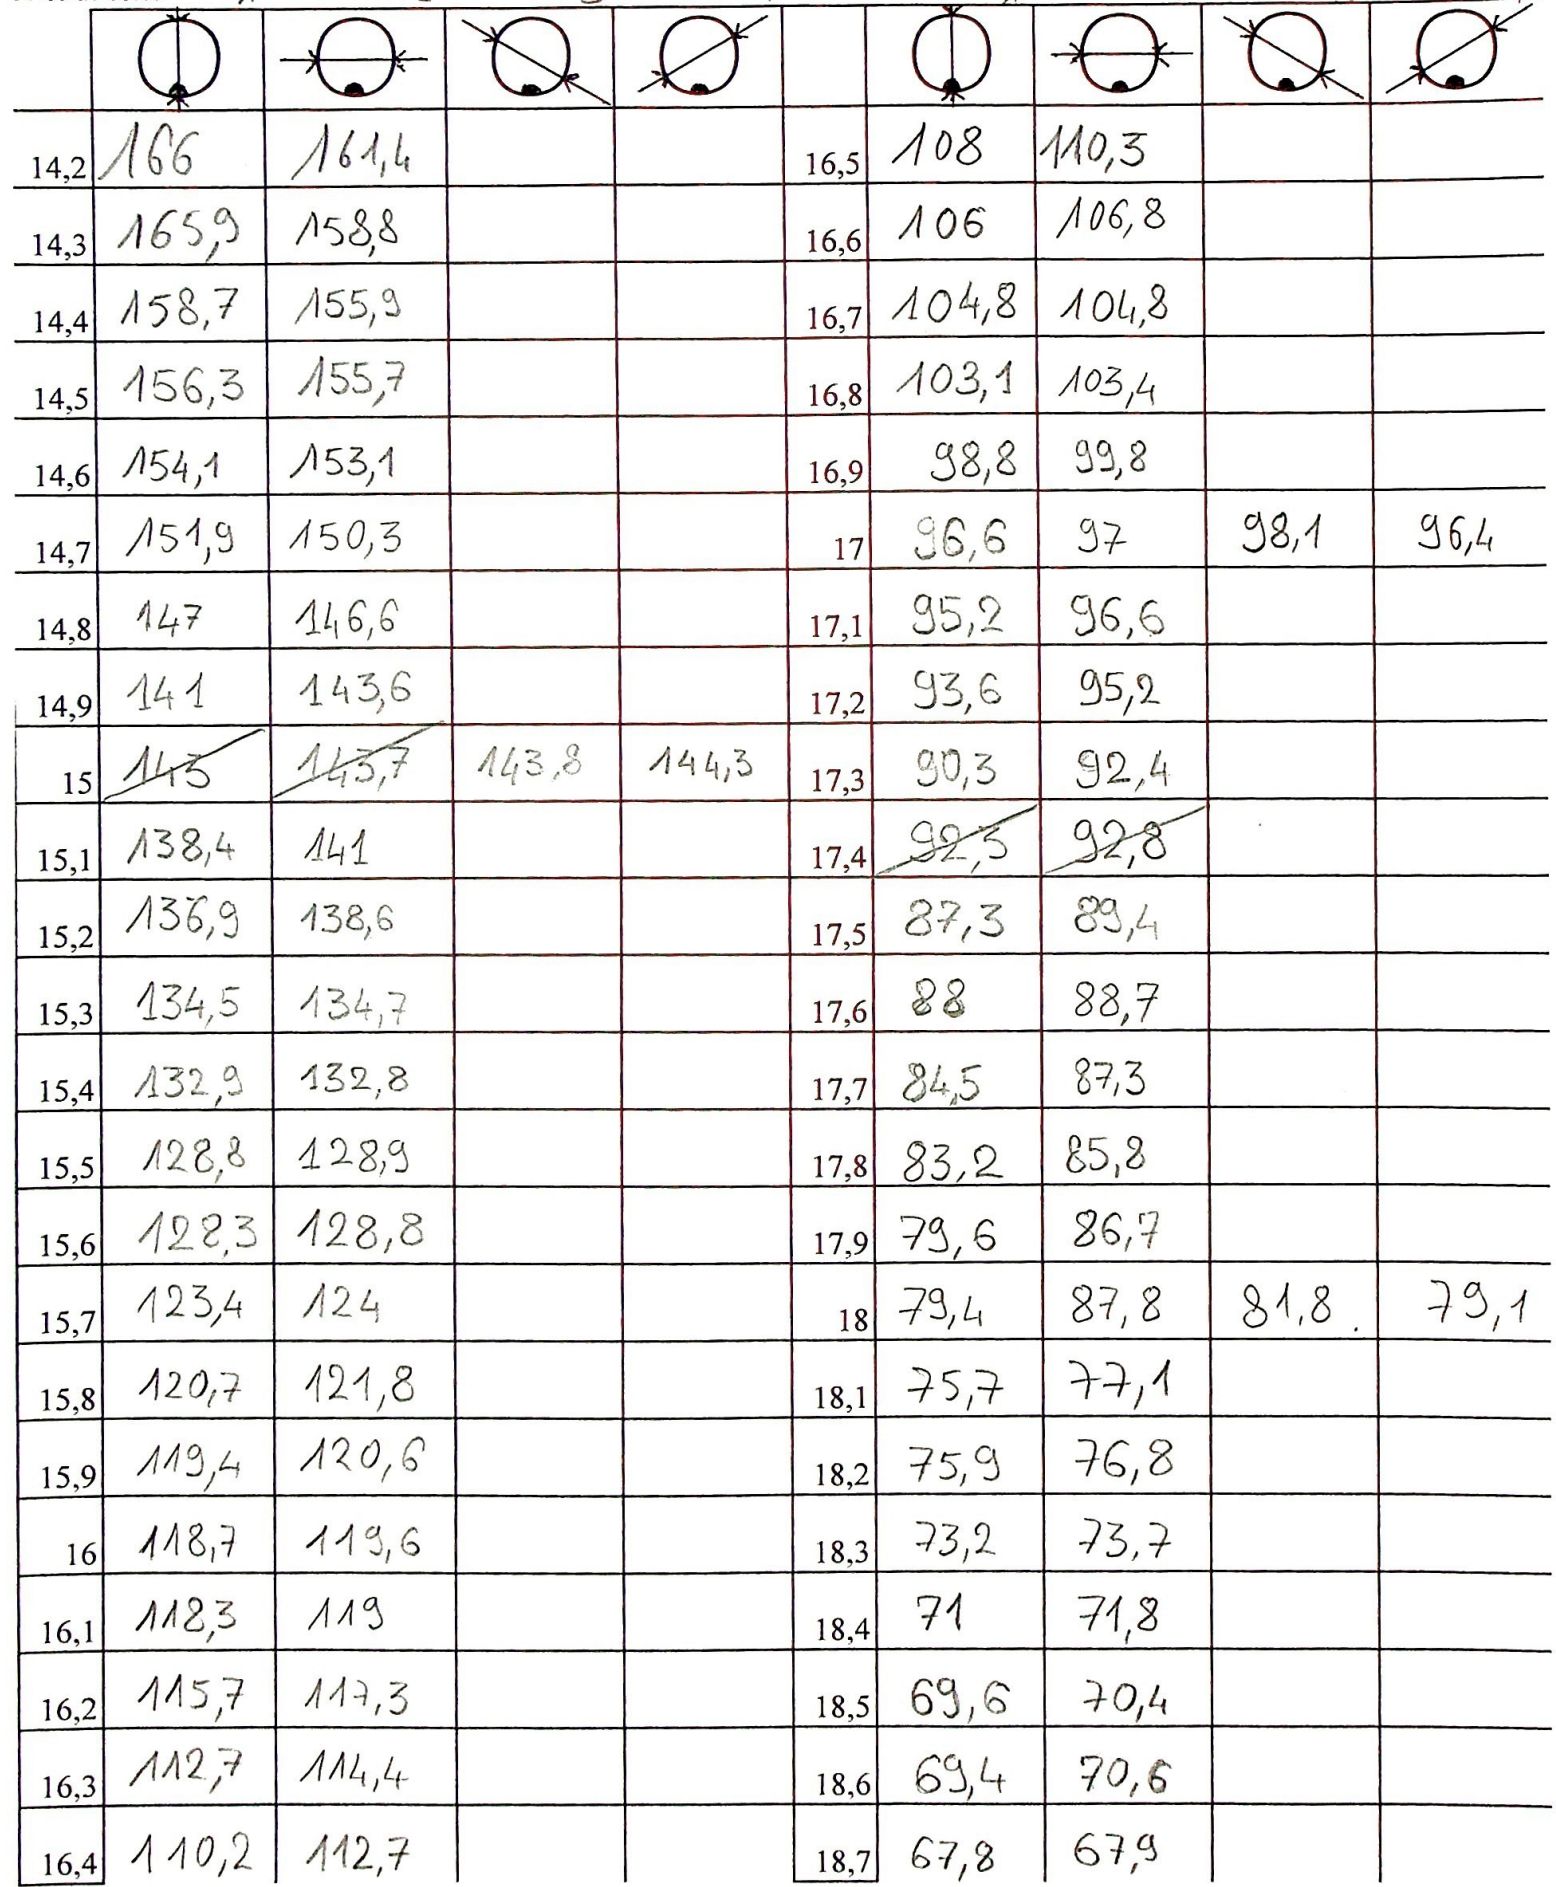 14,2 166 161,4 16,5 108 110,3
14,3 165,9 158,8 16,6 106 106,8
14,4 158,7 155,9 16,7 104,8 104,8
14,5 156,3 155,7 16,8 103,1 103,4
14,6 154,1 153,1 16,9 98,8 99,8
14,7 151,9 150,3 17 96,6 97 98,1 96,4
14,8 147 146,6 17,1 95,2 96,6
14,9 141 143,6 17,2 93,6 95,2
15 143 143,7 143,8 144,3 17,3 90,3 92,4
15,1 138,4 141 17,4 92,5 92,8
15,2 136,9 138,6 17,5 87,3 89,4
15,3 134,5 134,7 17,6 88 88,7
15,4 132,9 132,8 17,7 84,5 87,3
15,5 128,8 128,9 17,8 83,2 85,8
15,6 128,3 128,8 17,9 79,6 86,7
15,7 123,4 124 18 79,4 87,8 81,8 79,1
15,8 120,7 121,8 18,1 75,7 77,1
15,9 119,4 120,6 18,2 75,9 76,8
16 118,7 119,6 18,3 73,2 73,7
16,1 118,3 119 18,4 71 71,8
16,2 115,7 117,3 18,5 69,6 70,4
16,3 112,7 114,4 18,6 69,4 70,6
16,4 110,2 112,7 18,7 67,8 67,9